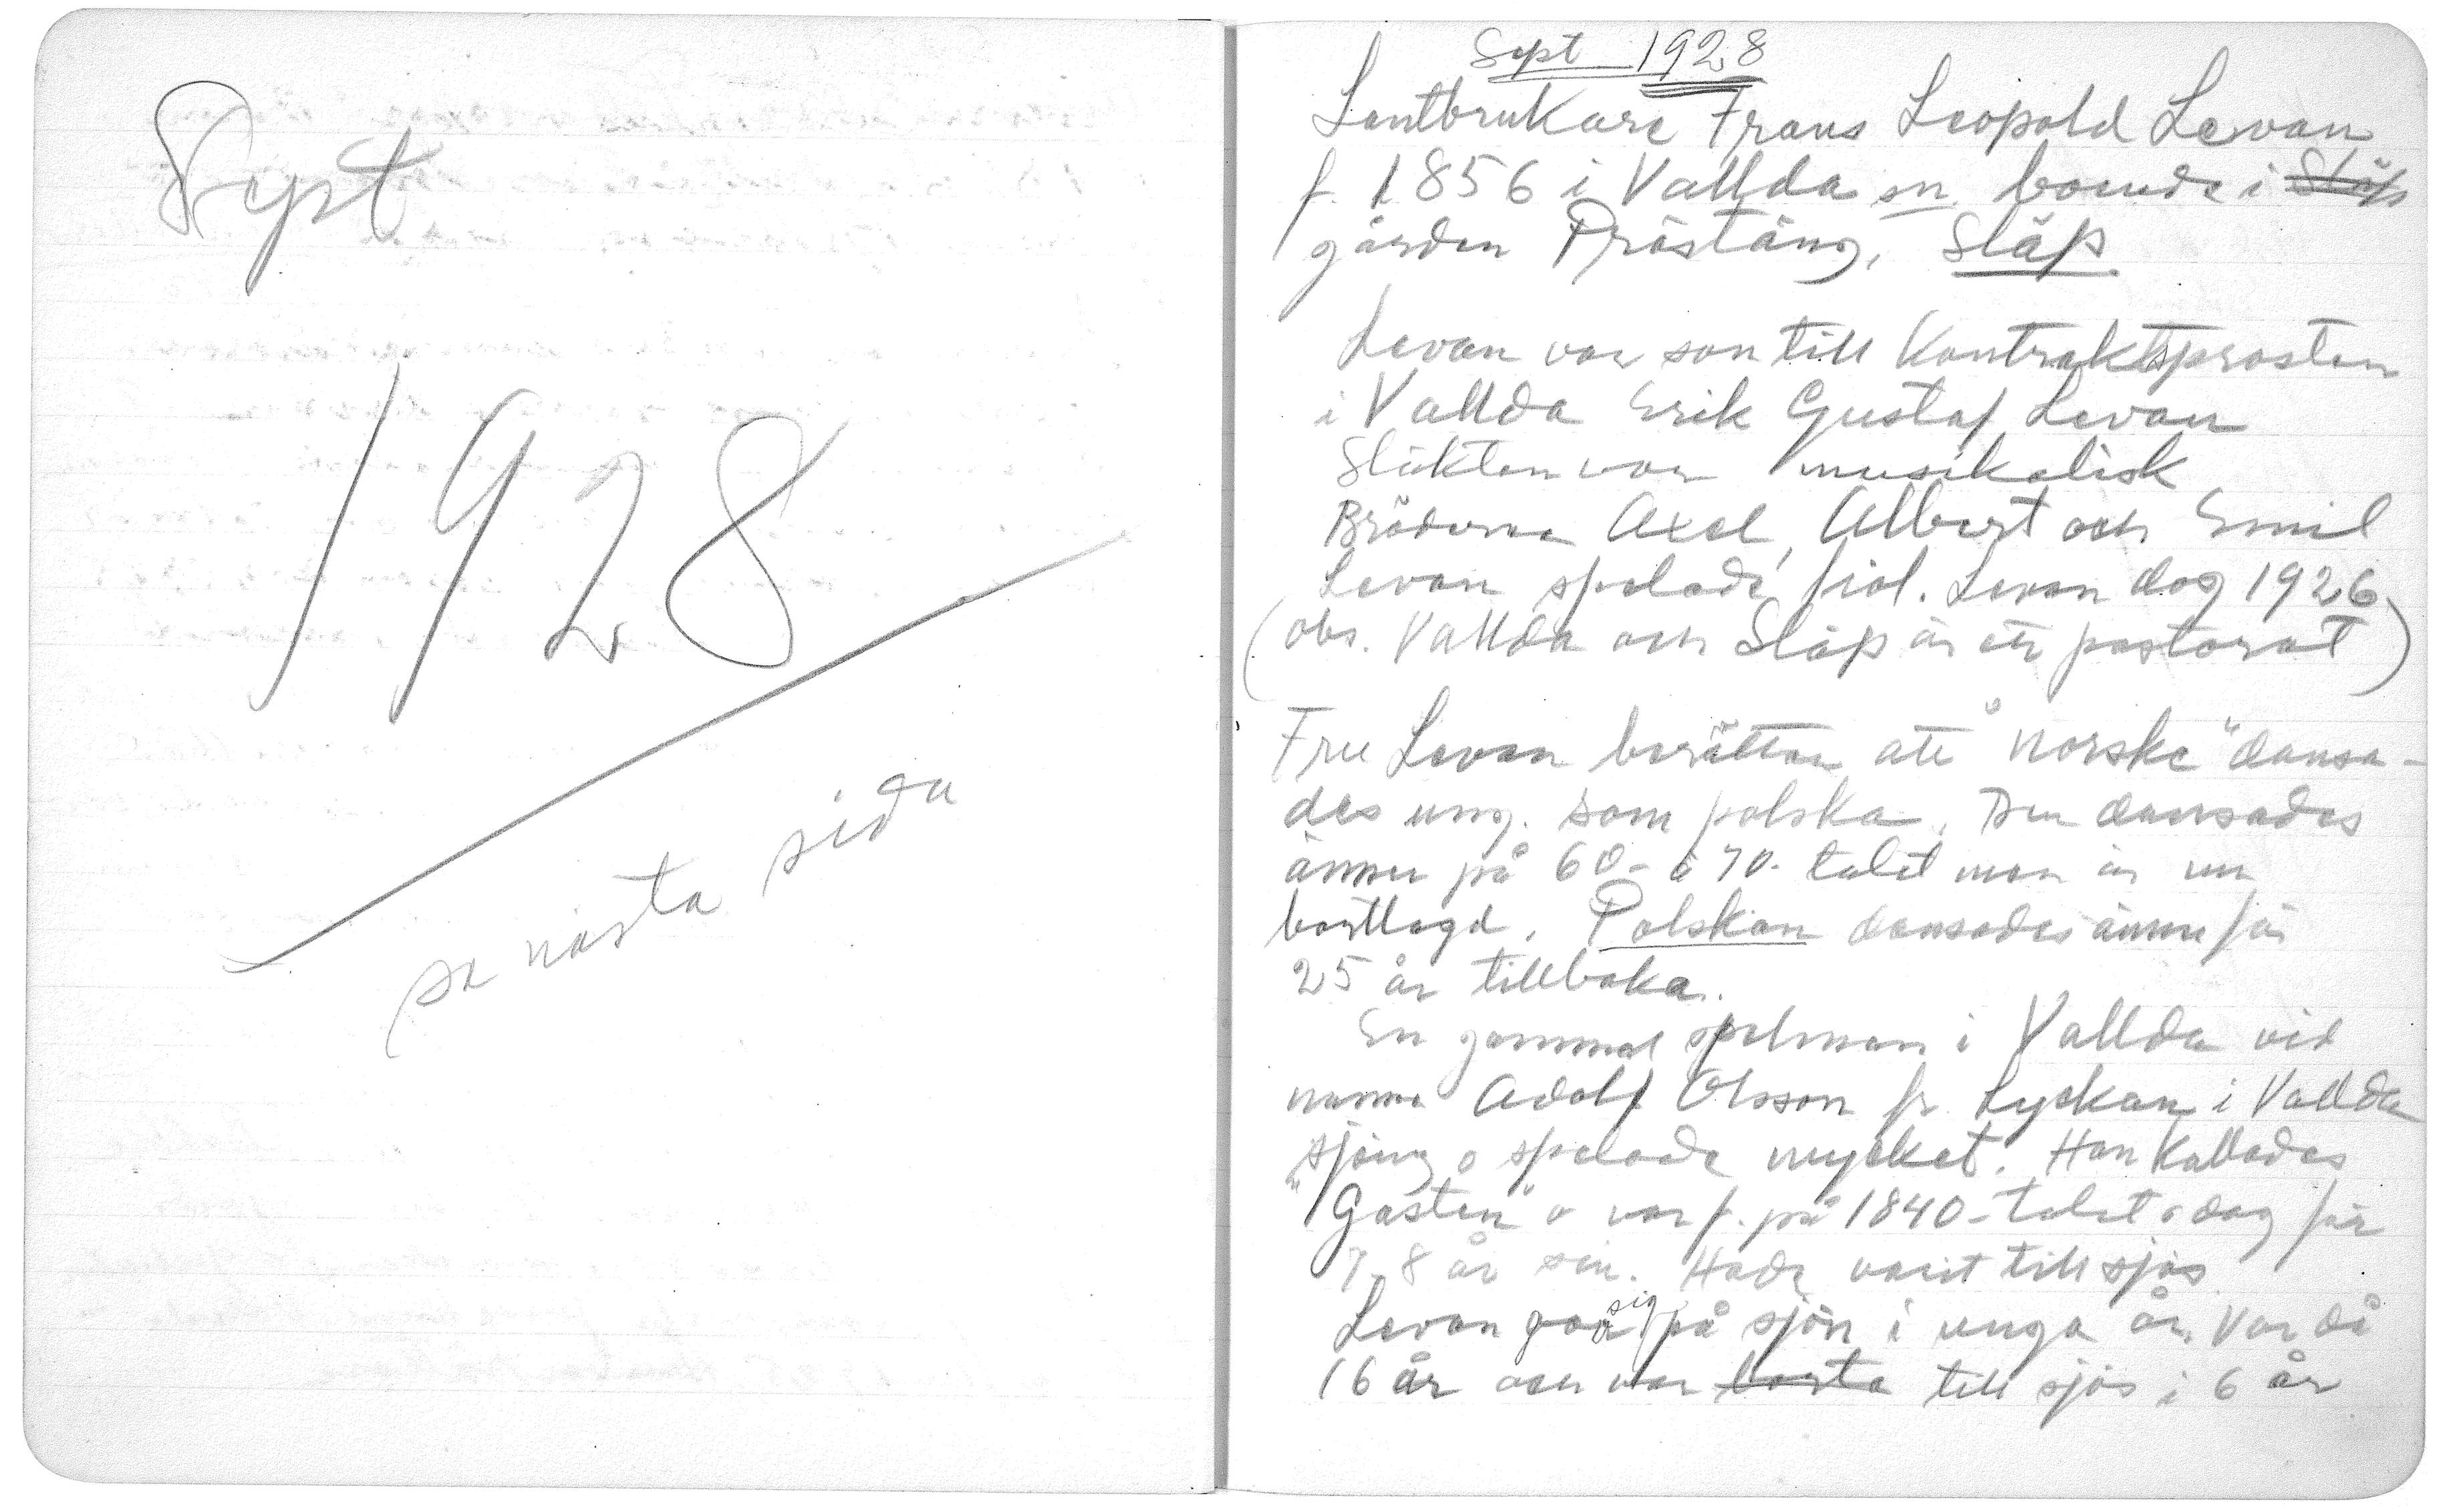 Sept
1928
se nästa sida
Sept 1928
Lantbrukare Frans Leopold Levan
f. 1856 i Vallda sn. boende i Släp
gården Prästäng, Släp
Levan var son till Kontraktsprosten
i Vallda Erik Gustaf Levan
Släkten var musikalisk
Bröderna Axel, Albert och Emil
Levan spelade fiol. Levan dog 1926
(obs. Vallda och Släp är ett pastorat)
Fru Levan berättar att "norske" dansa-
des ung. som polska. Den dansades
ännu på 60- à 70-talet men är nu
bortlagd. Polskan dansades ännu för
25 år tillbaka.
En gammal spelman i Vallda vid
namn Adolf Olsson fr. Lyckan i Vallda
sjöng o spelade mycket. Han kallades
"Gasten" o var f. på 1840-talet o dog för
7-8 år sen. Hade varit till sjös
Levan gav sig på sjön i unga år. Var då
16 år och var borta till sjös i 6 år